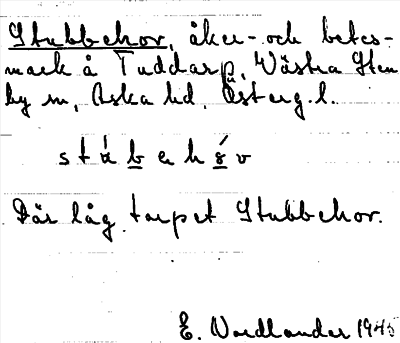 Stubbehov, åker- och betes-
mark å Tuddarp, Västra Sten
by sn, Aska hd, Österg. l.
s t á b e h ó v
Där låg torpet Stubbehov.
E. Nordlander 1945